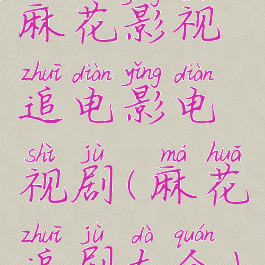 麻花影视
zhuī diàn yǐng diàn
追电影电
shì jù má huā
视剧(麻花
zhuī jù dà quán
追剧大全)